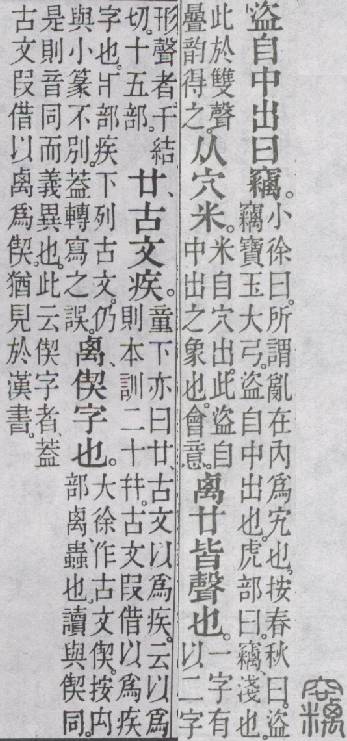 盜自中出曰竊。
小徐曰。所謂亂在內爲宄也。按春秋曰。盜
竊寶玉大弓。盜自中出也。虎部曰。竊淺也。
此於雙聲
曡韵得之。
从穴米。
米自穴出。此盜自
中出之象也。會意。
禼廿皆聲也。
一字有
以二字
形聲者。千結
切。十五部。
廿、古文疾。
童下亦曰廿、古文以爲疾。云以爲
則本訓二十幷。古文叚借以爲疾
字也。疒部疾下列古文。仍
與小篆不別。葢轉寫之誤。
禼偰字也。
大徐作古文偰。按禸
部禼、蟲也。讀與偰同。
是則音同而義異也。此云偰字者、葢
古文叚借以禼爲偰。猶見於漢書。